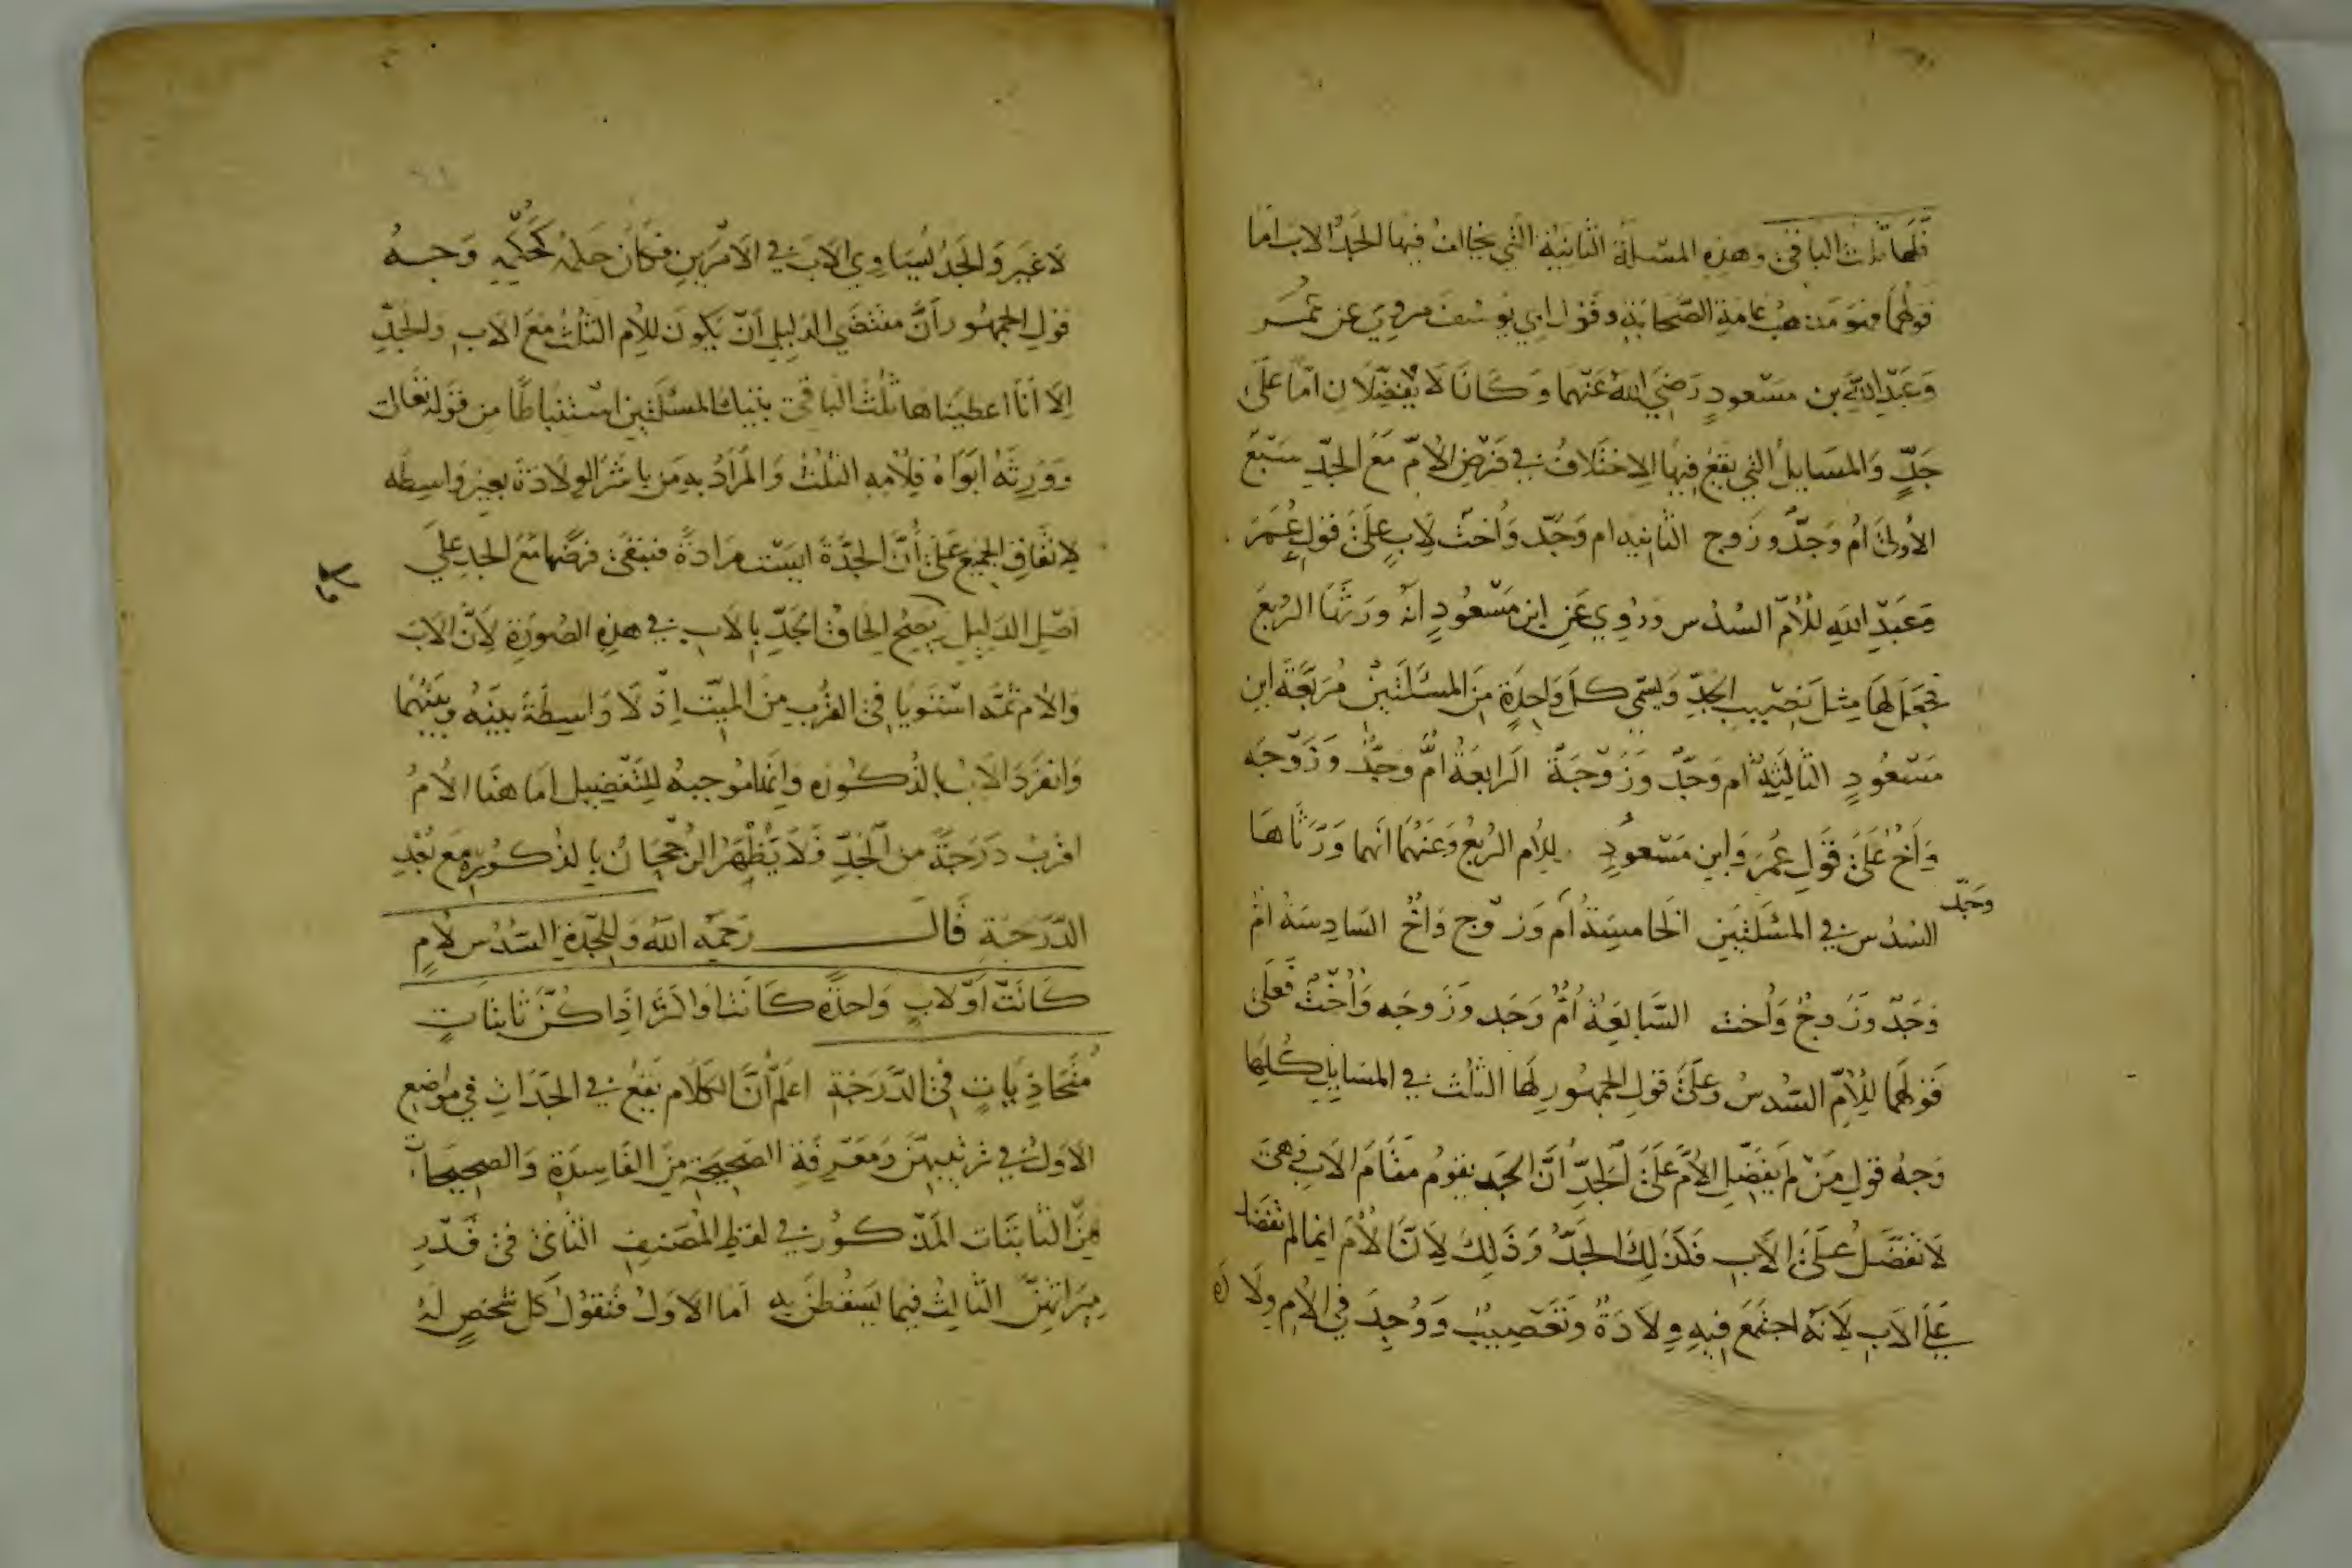 فلها ثلث الباقي وهذه المسئلة الثانية التي يخالف فيها الجد الاب اما
قولهما فهو مذهب عامة الصحابة وقول ابي يوسف مروي عن عمر
وعبد الله بن مسعود رضي الله عنهما وكانا لا يفضلان اما على
جد والمسايل التي يقع فيها الاختلاف في فرض الام مع الجد سبع
الاولى ام وجد وزوج الثانيه ام وجد واخت لاب على قول عمر
وعبد الله للام السدس وروي عن ابن مسعود انه ورثها الربع
فجعل لها مثل نصيب الجد ويسمى كل واحدة من المسئلتين مربعة ابن
مسعود الثالثة ام وجد وزوجة الرابعة ام وجد وزوجه
واخ على قول عمر وابن مسعود للام الربع وعنهما انهما ورثاها
وجد
السدس في المسئلتين الخامسة ام وزوج واخ السادسة ام
وجد وزوج واخت السابعة ام وجد وزوجه واخت فعلى
قولهما للام السدس وعلى قول الجمهور لها الثلث في المسايل كلها
وجه قول من لم يفضل الام على الجد ان الجد يقوم مقام الاب فهي
لا تفضل على الاب فكذلك الجد وذلك لان الام انما لم تفضل
على الاب لانه اجتمع فيه ولادة وتعصيب ووجد في الام ولادة
لا غير والجد يساوي الاب في الامرين فكان حكمه كحكمه وجه
قول الجمهور ان مقتضى الدليل ان يكون للام الثلث مع الاب والجد
الا انا اعطيناها ثلث الباقي بتينك المسئلتين استنباطا من قوله تعالى
وورثه ابواه فلامه الثلث والمراد به من باشر الولادة بغير واسطه
لاتفاق الجميع على ان الجدة ليست مرادة فبقى فرضها مع الجد على
اصل الدليل يصح الحاق الجد بالاب في هذه الصورة لان الاب
والام ثمه استويا في القرب من الميت اذ لا واسطة بينه وبينهما
وانفرد الاب بالذكوره وانها موجبه للتفضيل اما هنا الام
اقرب درجة من الجد فلا يظهر الرجحان بالذكوره مع بعد
الدرجة قال رحمه الله وللجدة السدس لام
كانت او لاب واحدة كانت او اكثر اذا كن ثابتات
متحاذيات في الدرجة اعلم ان الكلام يقع في الجدات في مواضع
الاول في ترتيبهن ومعرفة الصحيحة من الفاسدة والصحيحات
هن الثابتات المذكور في لفظ المصنف الثاني في قدر
ميراثهن الثالث فيما يسقطن به اما الاول فنقول كل شخص له